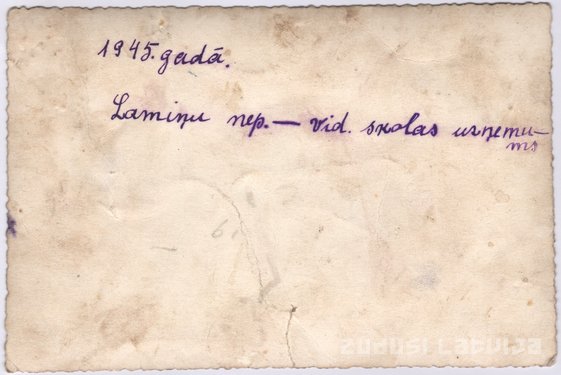 1945. gadā.
Lamiņu nep. — vid. skolas uzņemu-
ms
zudusi Latvija